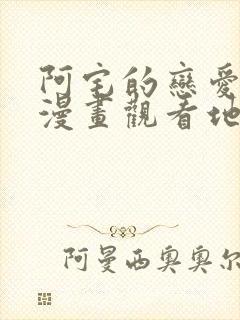 阿宅的戀愛
漫畫觀看地
阿曼西奧奧尔